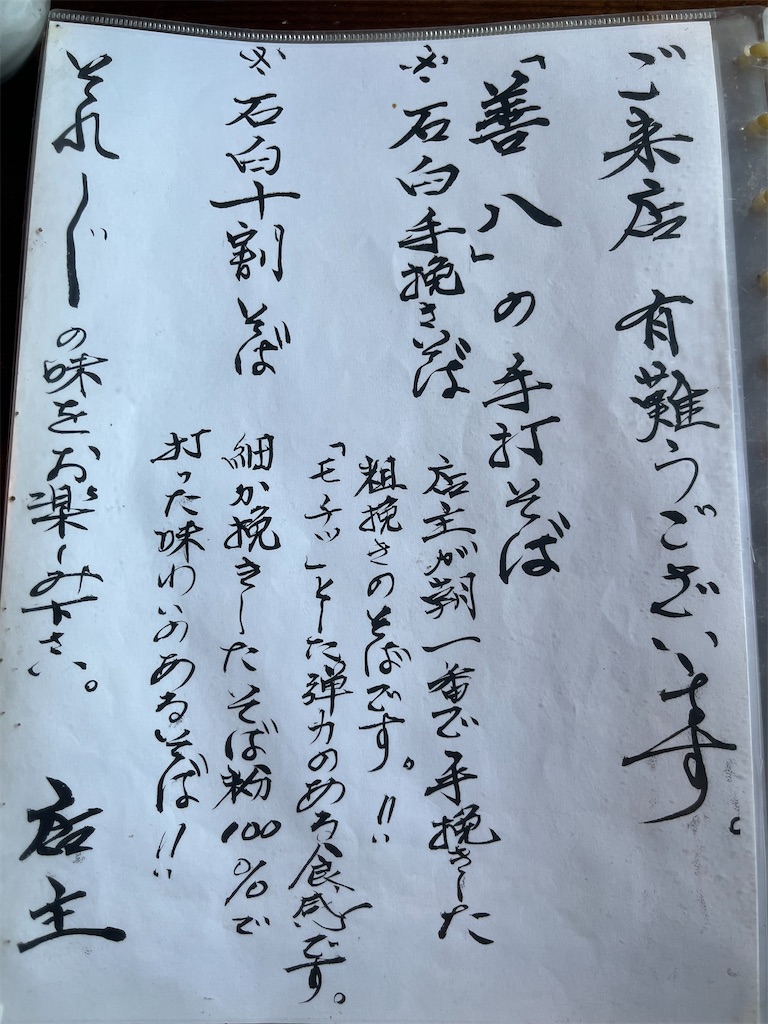 ご来店 有難うございます。
「善八」の手打そば
※石臼手挽きそば
店主が朝一番で手挽きした
粗挽きのそばです。!!
「モチッ」とした弾力のある食感です。
※石臼十割そば
細か挽きしたそば粉100%で
打った味わいのあるそば!!
それ〲の味をお楽しみ下さい。
店主